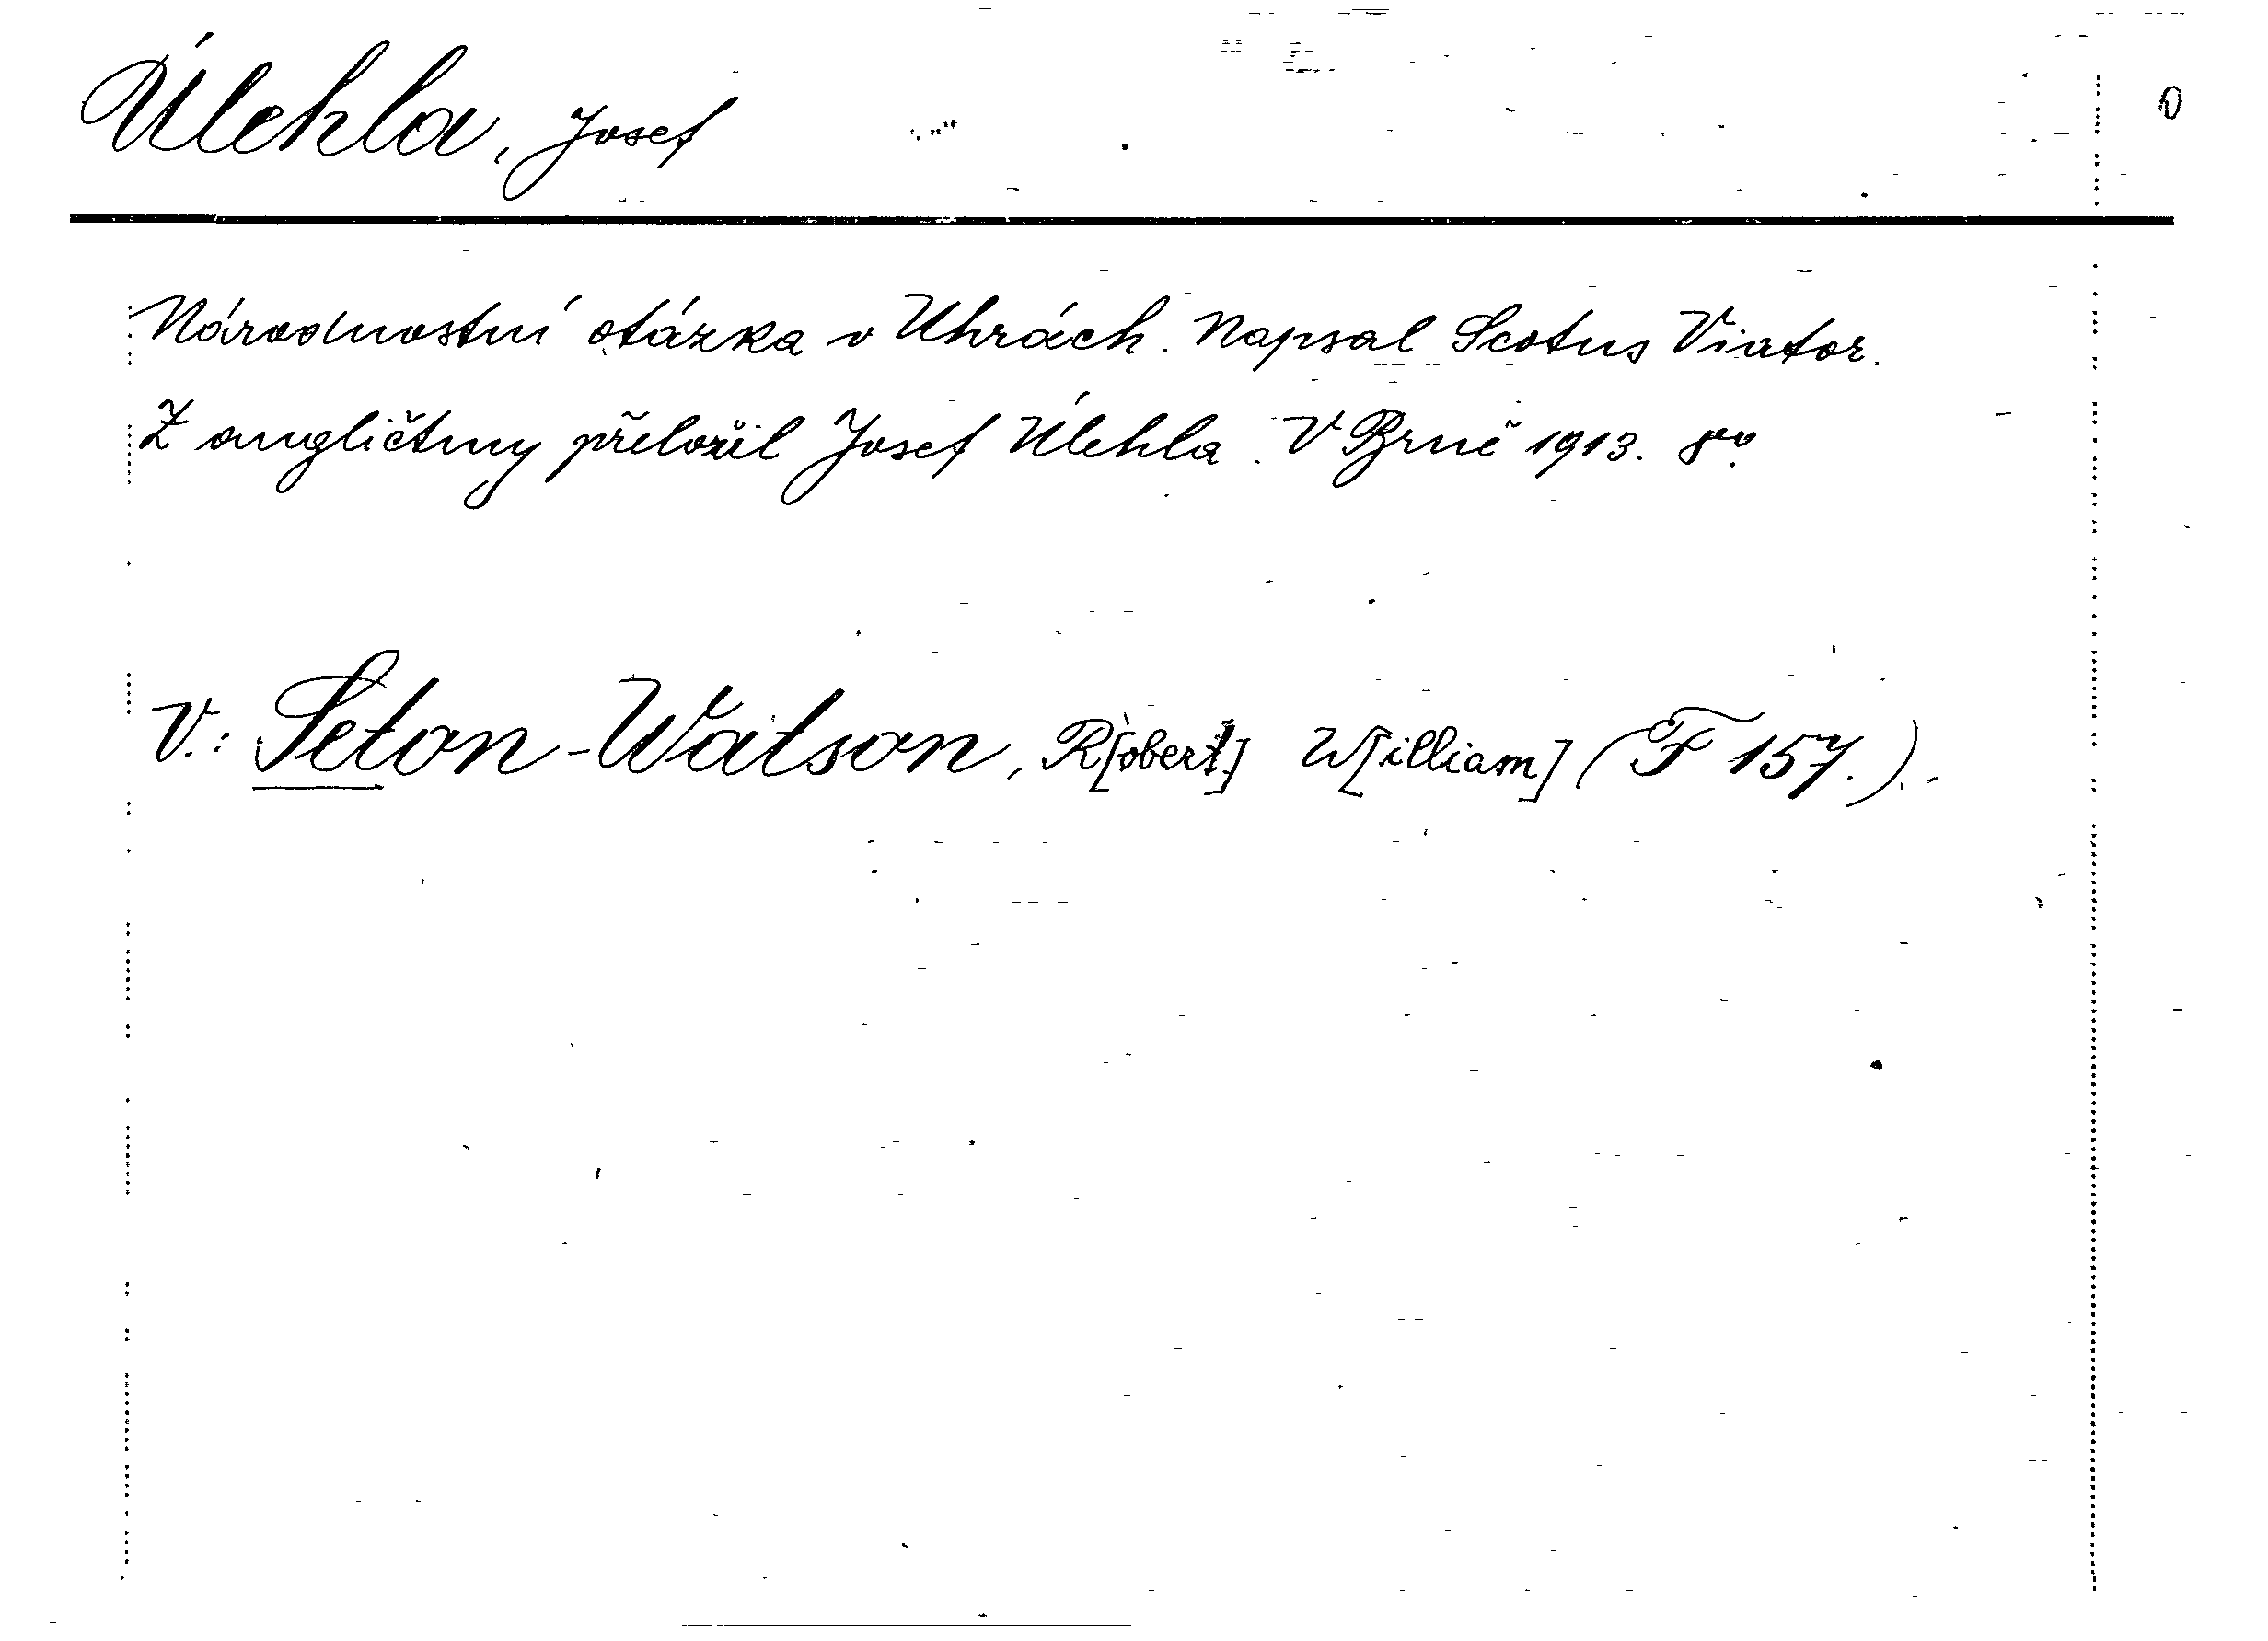 Úlehla, Josef
0
Národnostní otázka v Uhrách. Napsal Scotus Viator.
Z angličtiny přeložil Josef Úlehla. V Brně 1913. 8vo.
V.: Seton-Watson, R[obert] W[illiam] (F 157.).-